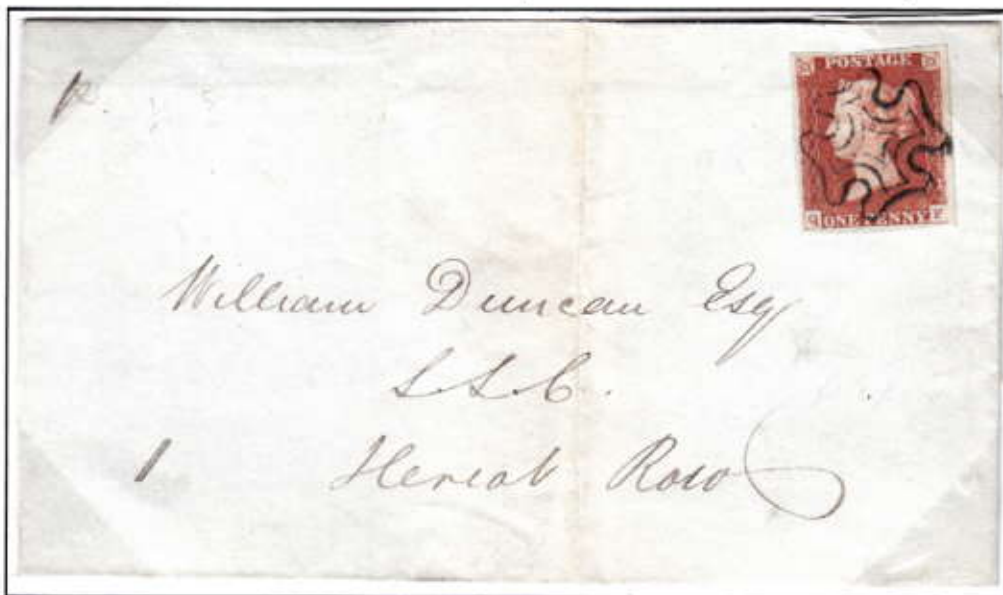 POSTAGE
ONE PENNY
William Duncan Esq
S.S.C.
1 Heriot Row